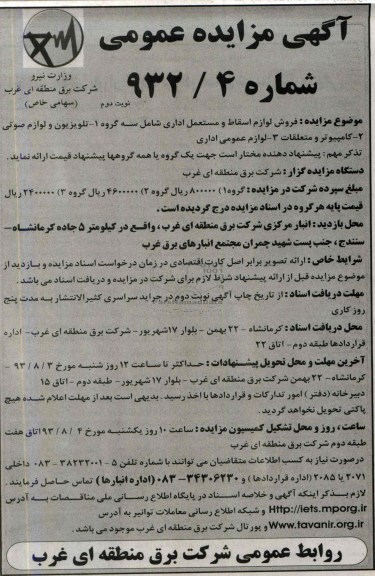 آگهی مزایده عمومی
شماره ۴ / ۹۳۲
وزارت نیرو
شرکت برق منطقه ای غرب
(سهامی خاص)
نوبت دوم
موضوع مزایده : فروش لوازم اسقاط و مستعمل اداری شامل سه گروه ۱-تلویزیون و لوازم صوتی
۲-کامپیوتر و متعلقات ۳-لوازم عمومی اداری
تذکر مهم : پیشنهاد دهنده مختار است جهت یک گروه یا همه گروهها پیشنهاد قیمت ارائه نماید .
دستگاه مزایده گزار : شرکت برق منطقه ای غرب
مبلغ سپرده شرکت در مزایده : گروه۱) ۸۰۰۰۰۰ ریال گروه ۲) ۴۶۰۰۰۰۰ ریال گروه ۳) ۲۴۰۰۰۰۰ ریال
قیمت پایه هر گروه در اسناد مزایده درج گردیده است .
محل بازدید : انبار مرکزی شرکت برق منطقه ای غرب ، واقع در کیلومتر ۵ جاده کرمانشاه –
سنندج ، جنب پست شهید چمران مجتمع انبارهای برق غرب
شرایط خاص : ارائه تصویر برابر اصل کارت اقتصادی در زمان درخواست اسناد مزایده و بازدید از
موضوع مزایده قبل از ارائه پیشنهاد شرط لازم برای شرکت در مزایده و دریافت اسناد می باشد .
مهلت دریافت اسناد : از تاریخ چاپ آگهی نوبت دوم در جراید سراسری کثیرالانتشار به مدت پنج
روز کاری
محل دریافت اسناد : کرمانشاه – ۲۲ بهمن – بلوار ۱۷شهریور – شرکت برق منطقه ای غرب – اداره
قراردادها طبقه دوم – اتاق ۲۲
آخرین مهلت و محل تحویل پیشنهادات : حداکثر تا ساعت ۱۲ روز شنبه مورخ ۹۳ / ۸ / ۳ –
کرمانشاه – ۲۲ بهمن شرکت برق منطقه ای غرب – بلوار ۱۷ شهریور – طبقه دوم – اتاق ۱۵
دبیرخانه (دفتر ) امور تدارکات و قراردادها با اخذ رسید . بدیهی است بعد از مهلت اعلام شده هیچ
پاکتی تحویل نخواهد گردید .
ساعت ، روز و محل تشکیل کمیسیون مزایده : ساعت ۱۰ روز یکشنبه مورخ ۴ / ۸ / ۹۳ اتاق هفت
طبقه دوم شرکت برق منطقه ای غرب
درصورت نیاز به کسب اطلاعات متقاضیان می توانند با شماره تلفن ۵ – ۳۸۲۳۲۰۰۱ – ۰۸۳ داخلی
۲۰۷۱ یا ۲۰۸۵ (اداره قراردادها ) و ۳۴۳۰۶۲۳۰–۰۸۳ (اداره انبارها ) تماس حاصل فرمایند .
لازم بذکر اینکه آگهی و خلاصه اسناد در پایگاه اطلاع رسانی ملی مناقصات به آدرس
Http://iets.mporg.ir و شبکه اطلاع رسانی معاملات توانیر به آدرس
Www.tavanir.org.ir و پورتال شرکت برق منطقه ای غرب موجود می باشد .
روابط عمومی شرکت برق منطقه ای غرب